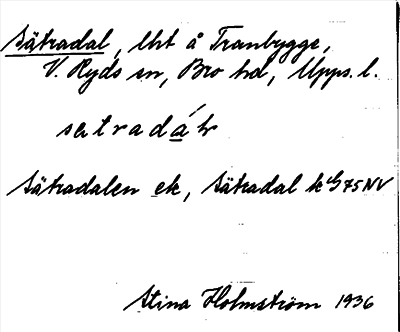 Sätradal, lht å Tranbygge,
V. Ryds sn, Bro hd, Upps. l.
sætradáḷr
Sätradalen ek, Sätradal k G75NV
Stina Holmström 1936